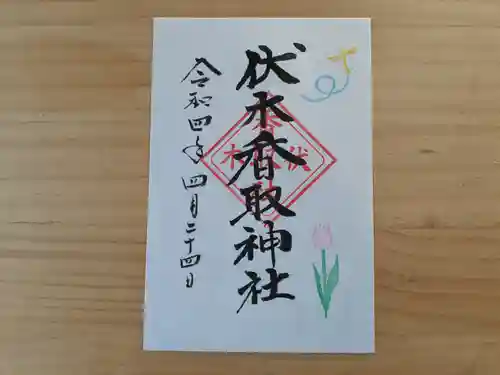 伏木香取神社
令和四年四月二十四日